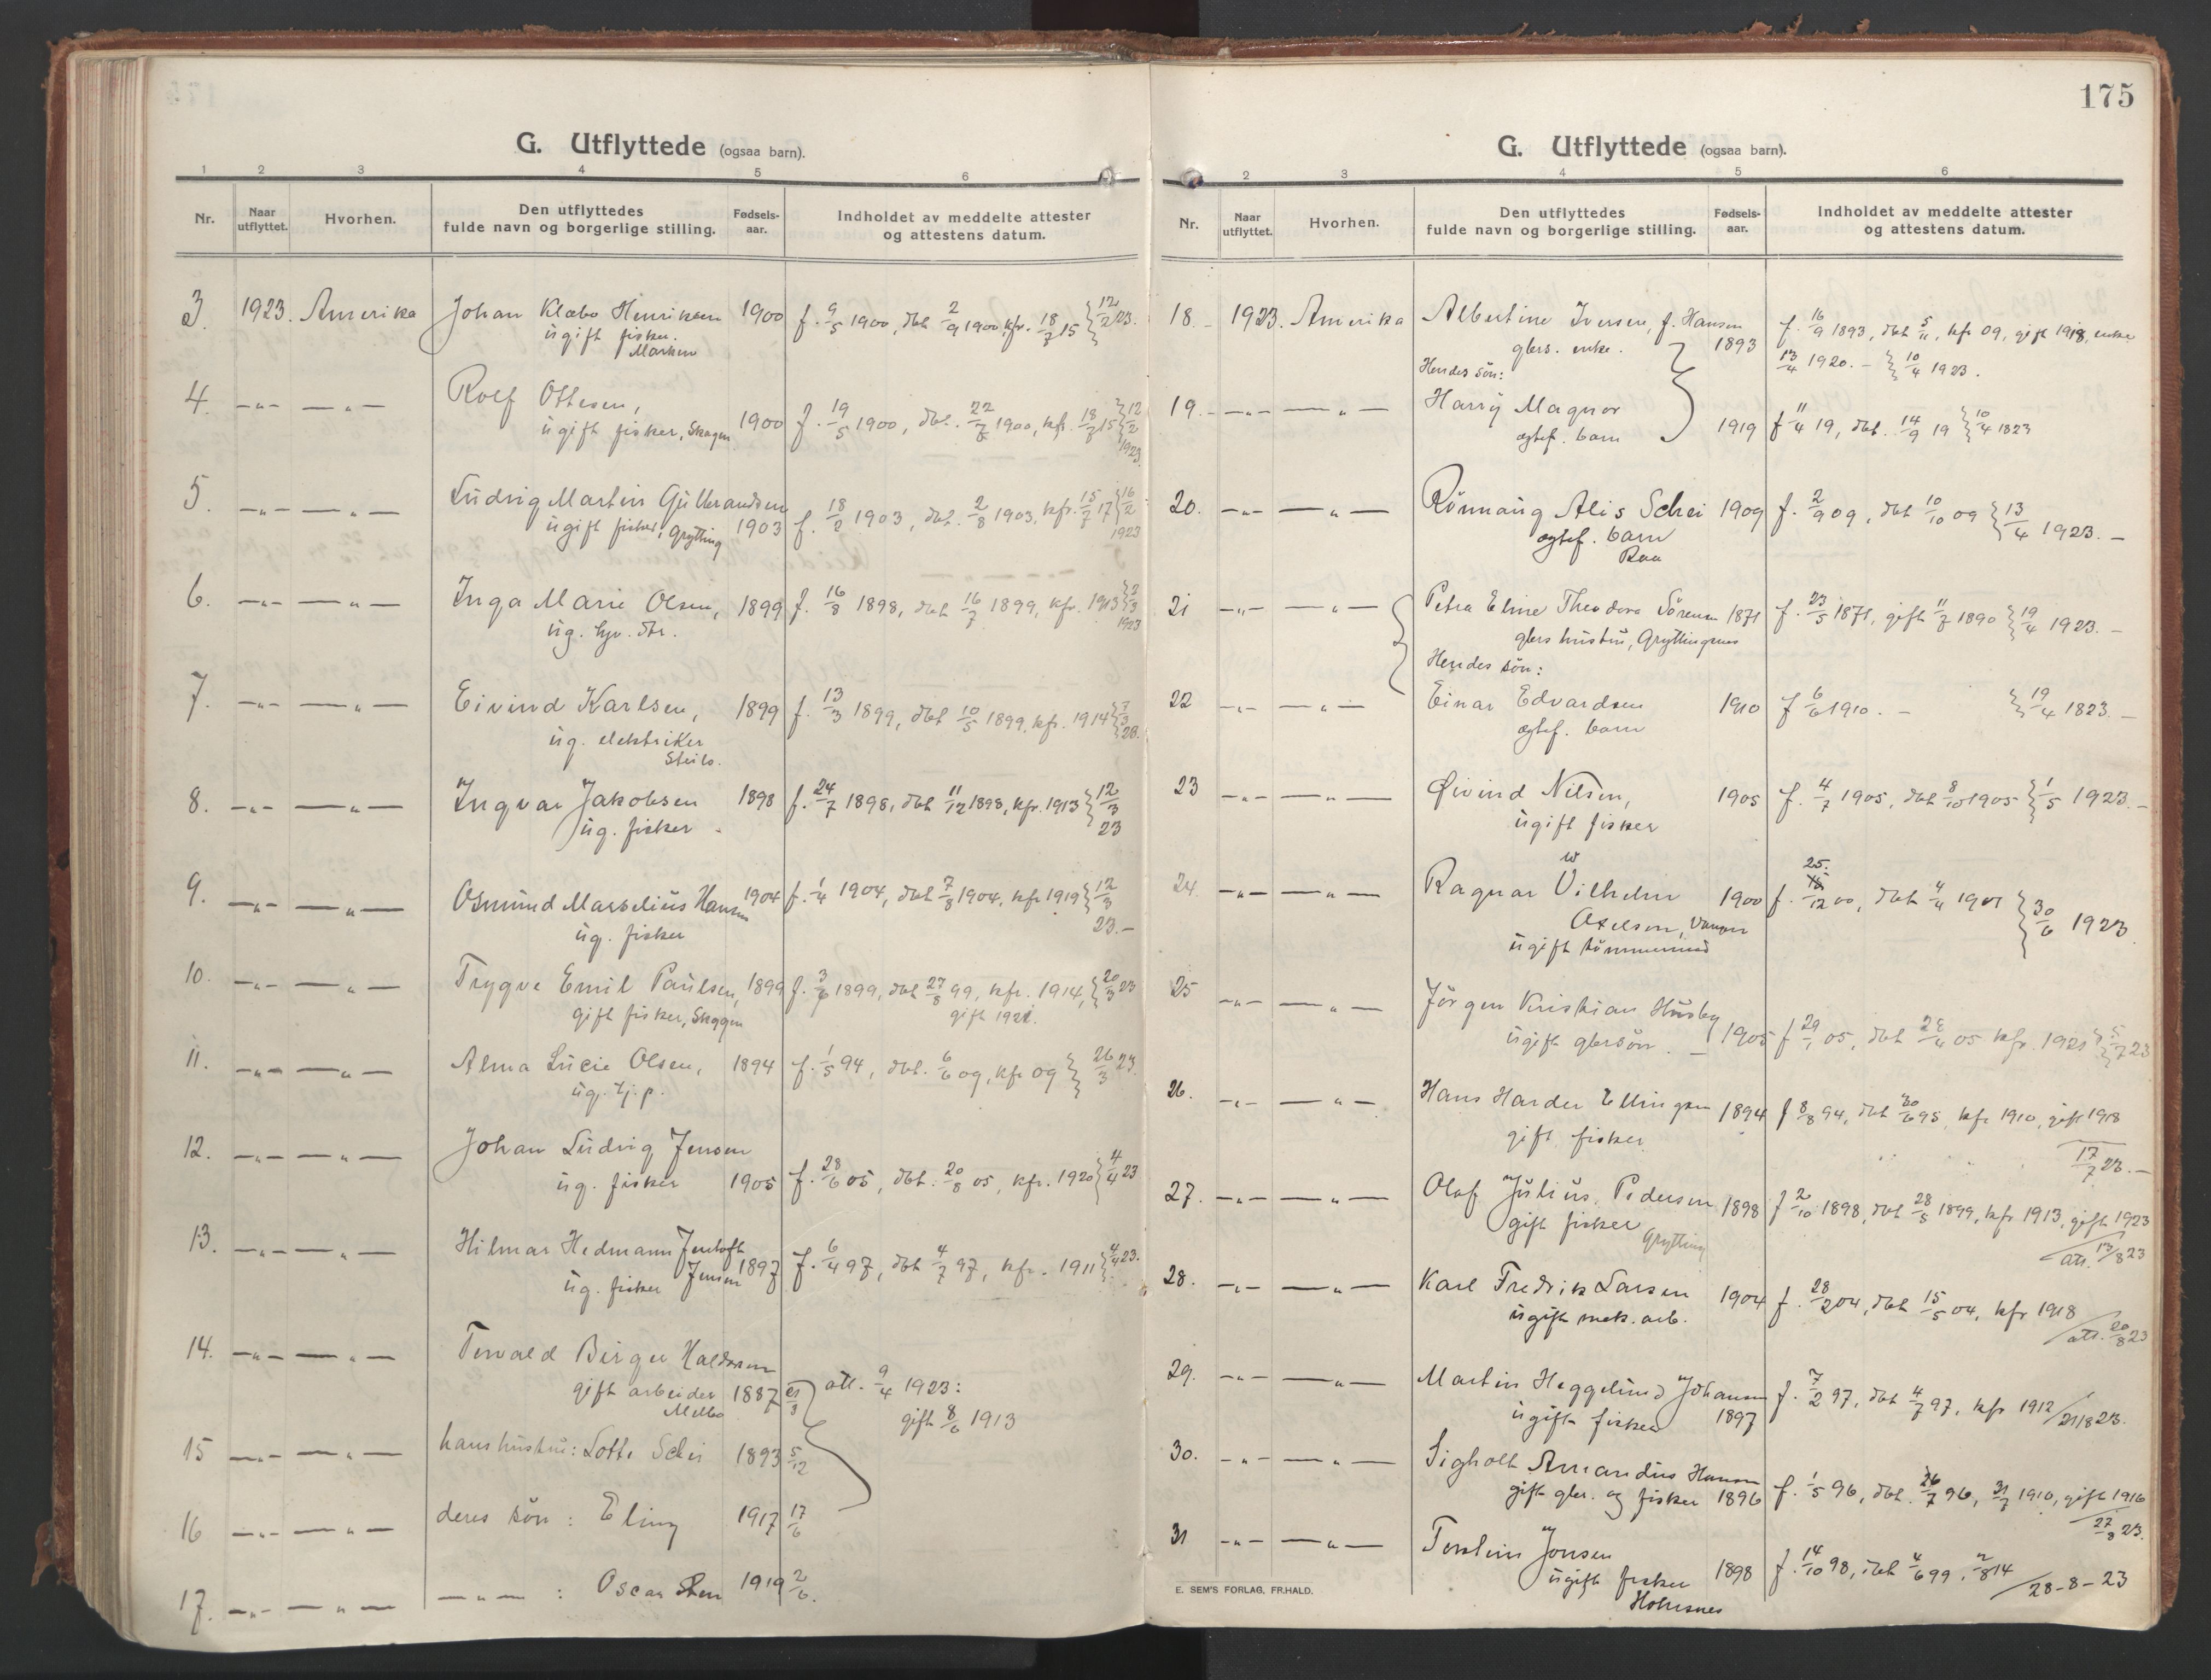 G. Utflyttede (ogsaa barn).
1 2 3 4 5 6
Nr. Naar utflyttet. Hvorhen. Den utflyttedes fulde navn og borgerlige stilling. Fødsels-aar. Indholdet av meddelte attester og attestens datum.
3. 1923. Amerika Johan Klæbo Henriksen 1900 f. 9/5 1900, dbt 2/9 1900, kfr. 18/7 15 } 12/2 23.
ugift fisker.
Marken
4. —"— —"— Rolf Ottesen,
ugift fisker, Skagen 1900 f. 19/5 1900, dbt. 22/7 1900, kfr. 18/7 15 } 12/2 1923
5. —"— —"— Ludvig Martin Gulbrandsen
ugift fisker, Grytting 1903 f. 18/2 1903, dbt. 2/8 1903, kfr. 15/7 17 } 16/2 1923
6. —"— —"— Inga Marie Olsen, 1899 f. 16/8 1898, dbt 16/7 1899, kfr. 1913 } 2/3 1923
ug.
7. —"— —"— Eivind Karlsen, 1899 f. 13/3 1899, dbt 10/5 1899, kfr. 1914 } 7/3 23.
ug. elektriker
Steilo.
8. —"— —"— Ingvar Jakobsen 1898 f. 24/7 1898, dbt 11/12 1898, kfr. 1913 } 12/3 23
ug. fisker
9. —"— —"— Osmund Marselius Hansen 1904 f. 1/4 1904, dbt 7/8 1904, kfr 1919 } 12/3 23.—
ug. fisker
10. —"— —"— Trygve Emil Paulsen, 1899 f. 3/6 1899, dbt 27/8 99, kfr. 1914, } 20/3 23
gift fisker, Skagen gift 1921.
11. —"— —"— Alma Lucie Olsen, 1894 f. 1/5 94, dbt. 6/6 09, kfr 09 } 26/3 23.
ug. tj. p.
12. —"— —"— Johan Ludvig Jensen
ug. fisker 1905 f. 28/6 05, dbt. 20/8 05, kfr. 1920 } 4/4 23
13. —"— —"— Hilmar Hedmann Jentoft
ug. fisker Jensen 1897 f. 6/4 97, dbt 4/7 97, kfr. 1911 } 4/4 23.
14. —"— —"— Torvald Birger Haldorsen
gift arbeider 1887 att. 9/4 1923:
Melbo gift 8/6 1913
15 —"— —"— hans hustru: Lotte Schei 1893 5/12
16 —"— —"— deres sön: Eling 1917 17/6
17. —"— —"— —"—: Oscar Sten 1919 2/6.
175
G. Utflyttede (ogsaa barn).
2 3 4 5 6
Nr. Naar utflyttet. Hvorhen. Den utflyttedes fulde navn og borgerlige stilling. Fødsels-aar. Indholdet av meddelte attester og attestens datum.
18. 1923. Amerika Albertine Iversen, f. Hansen
gbrs. enke. 1893 f. 16/9 1893, dbt 5/11, kfr 09, gift 1918, enke
13/4 1920. — } 10/4 1923.
Hendes sön:
19. —"— —"— Harry Magnor
egtef. barn 1919 f 11/4 19, dbt. 14/9 19 } 10/4 1823
20. —"— —"— Rönnaug Alis Schei 1909 f. 2/9 09, dbt 10/10 09 } 13/4 1923.—
egtef. barn
Raa
21 —"— —"— Petra Eline Theodora Sörensen 1871 f. 23/5 1871, gift 11/7 1890 } 19/4 1923.—
gbrs hustru,
Hendes sön:
22 —"— —"— Einar Edvardsen 1910 f 6/6 1910.— } 19/4 1823.—
egtef. barn
23 —"— —"— Øivind Nilsen, 1905 f. 4/7 1905, dbt 8/10 1905 } 1/5 1923.—
ugift fisker
w
24. —"— —"— Ragnar Vilhelm 1900 f. 25./12 00, dbt 4/4 1901 } 30/6 1923.
Axelson,
ugift tömmermand
25 —"— —"— Jörgen Kristian Husby
ugift gbrsön. — 1905 f 29/1 05, dbt 24/4 05 kfr. 1920 } 5/7 23
26. —"— —"— Hans Harder Ellingsen 1894 f 8/8 94, dbt 30/6 95, kfr 1910, gift 1918
gift fisker 17/7 23.—
27. —"— —"— Olaf Julius Pedersen 1898 f 2/10 1898, dbt 28/5 1899, kfr 1913, gift 1923
gift fisker Grytting att. 13/8 23
28. —"— —"— Karl Fredrik Larsen 1904 f. 28/2 04, dbt 15/5 04, kfr 1918
ugift mek. arb. att. 20/8 23
29. —"— —"— Martin Heggelund Johansen f. 7/2 97, dbt 4/7 97, kfr 1912
ugift fisker 1897 21/8 23.
30. —"— —"— Sigholt Amandus Hansen
gift gbr. og fisker 1896 f. 1/5 96, dbt. 26/7 96, 31/7 1910, gift 1916
27/8 23.
31 —"— —"— Torstein Jonsen
ugift fisker 1898 f. 14/10 98, dbt 4/6 99, 2/8 14
Hokesnes 28-8-23
E. SEM'S FORLAG, FR.HALD.